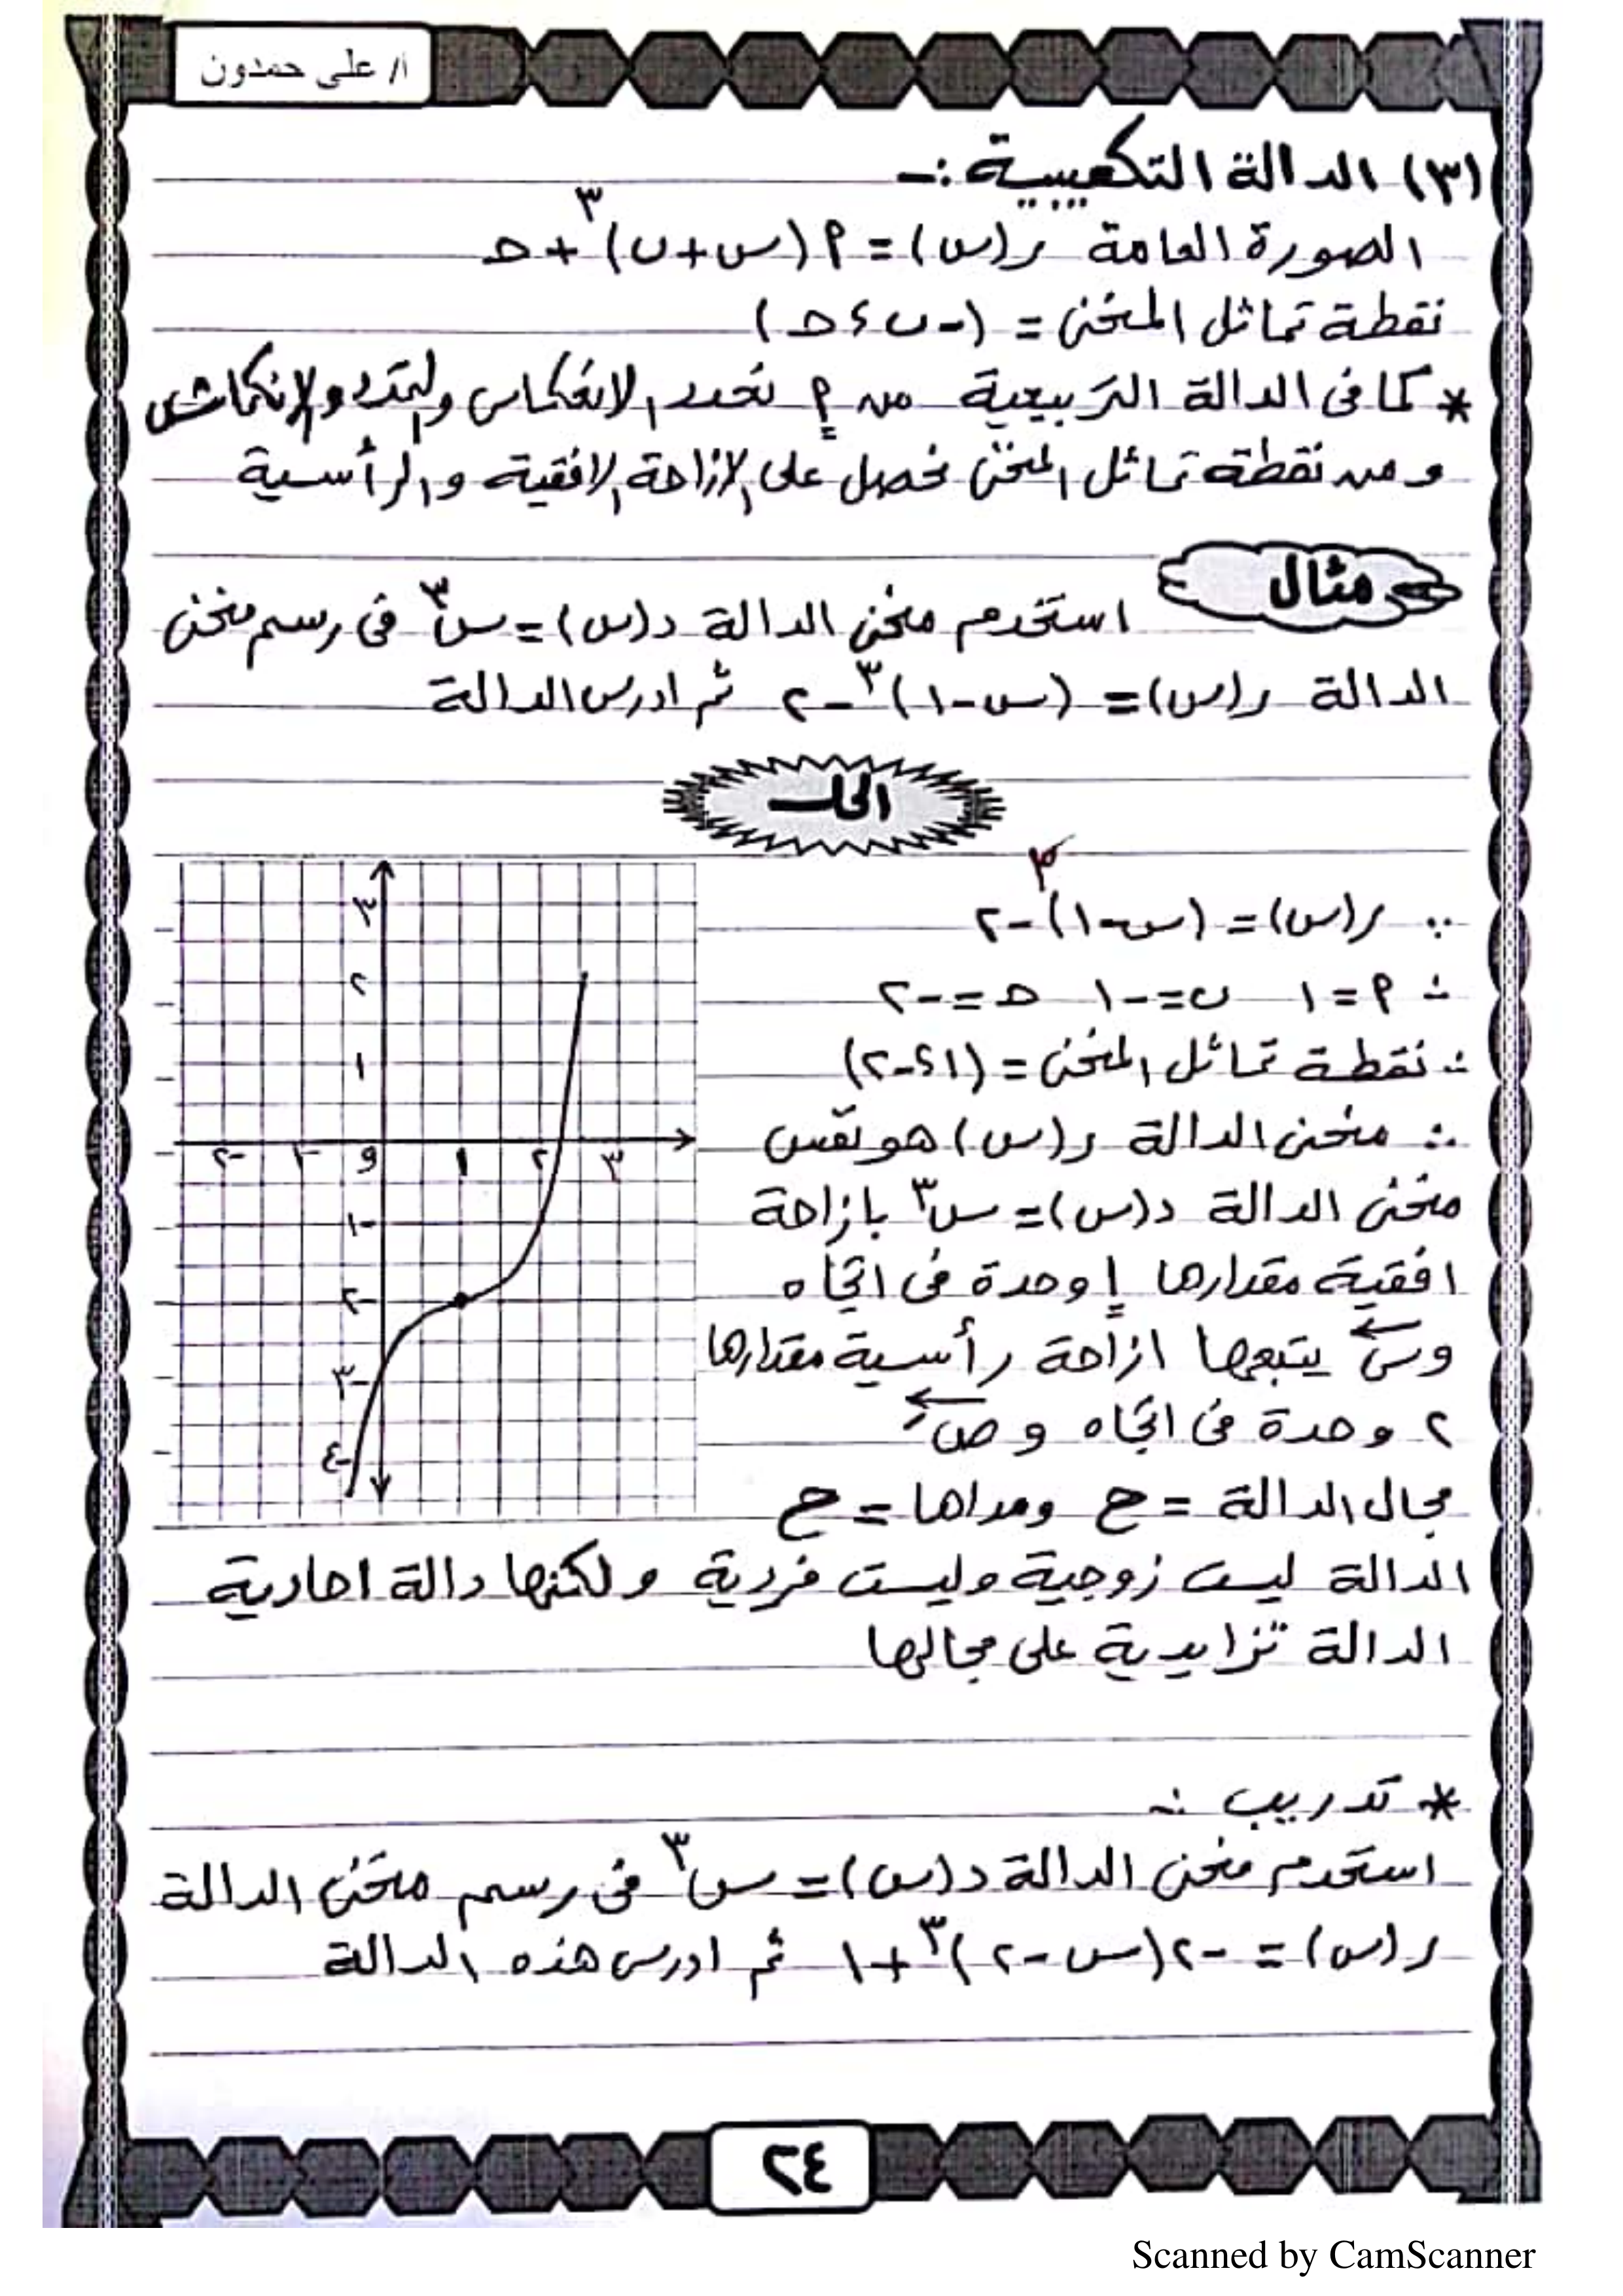 أ/ على حمدون
(٣) الدالة التكعيبية :-
الصورة العامة ر(س) = م(س+ب)^٣ + ح
نقطة تماثل المنحنى = (-ب ، ح)
* كما فى الدالة التربيعية من م نحدد الانعكاس والتمدد والانكماش
ومن نقطة تماثل المنحنى نحصل على الازاحة الافقية والرأسية
مثال
استخدم منحنى الدالة د(س) = س^٣ فى رسم منحنى
الدالة ر(س) = (س-١)^٣ -٢ ثم ادرس الدالة
الحل
∵ ر(س) = (س-١)^٣ -٢
∴ م = ١ ب = -١ ح = -٢
∴ نقطة تماثل المنحنى = (١ ، -٢)
∴ منحنى الدالة ر(س) هو نفس
منحنى الدالة د(س) = س^٣ بازاحة
افقية مقدارها ١ وحدة فى اتجاه
وس يتبعها ازاحة رأسية مقدارها
٢ وحدة فى اتجاه وصَ
مجال الدالة = ح ومداها = ح
الدالة ليست زوجية وليست فردية ولكنها دالة احادية
الدالة تزايدية على مجالها
٣
٢
١
-٢ -١ و ١ ٢ ٣
-١
-٢
-٣
-٤
* تدريب :-
استخدم منحنى الدالة د(س) = س^٣ فى رسم منحنى الدالة
ر(س) = -٢(س-٢)^٣ +١ ثم ادرس هذه الدالة
٢٤
Scanned by CamScanner